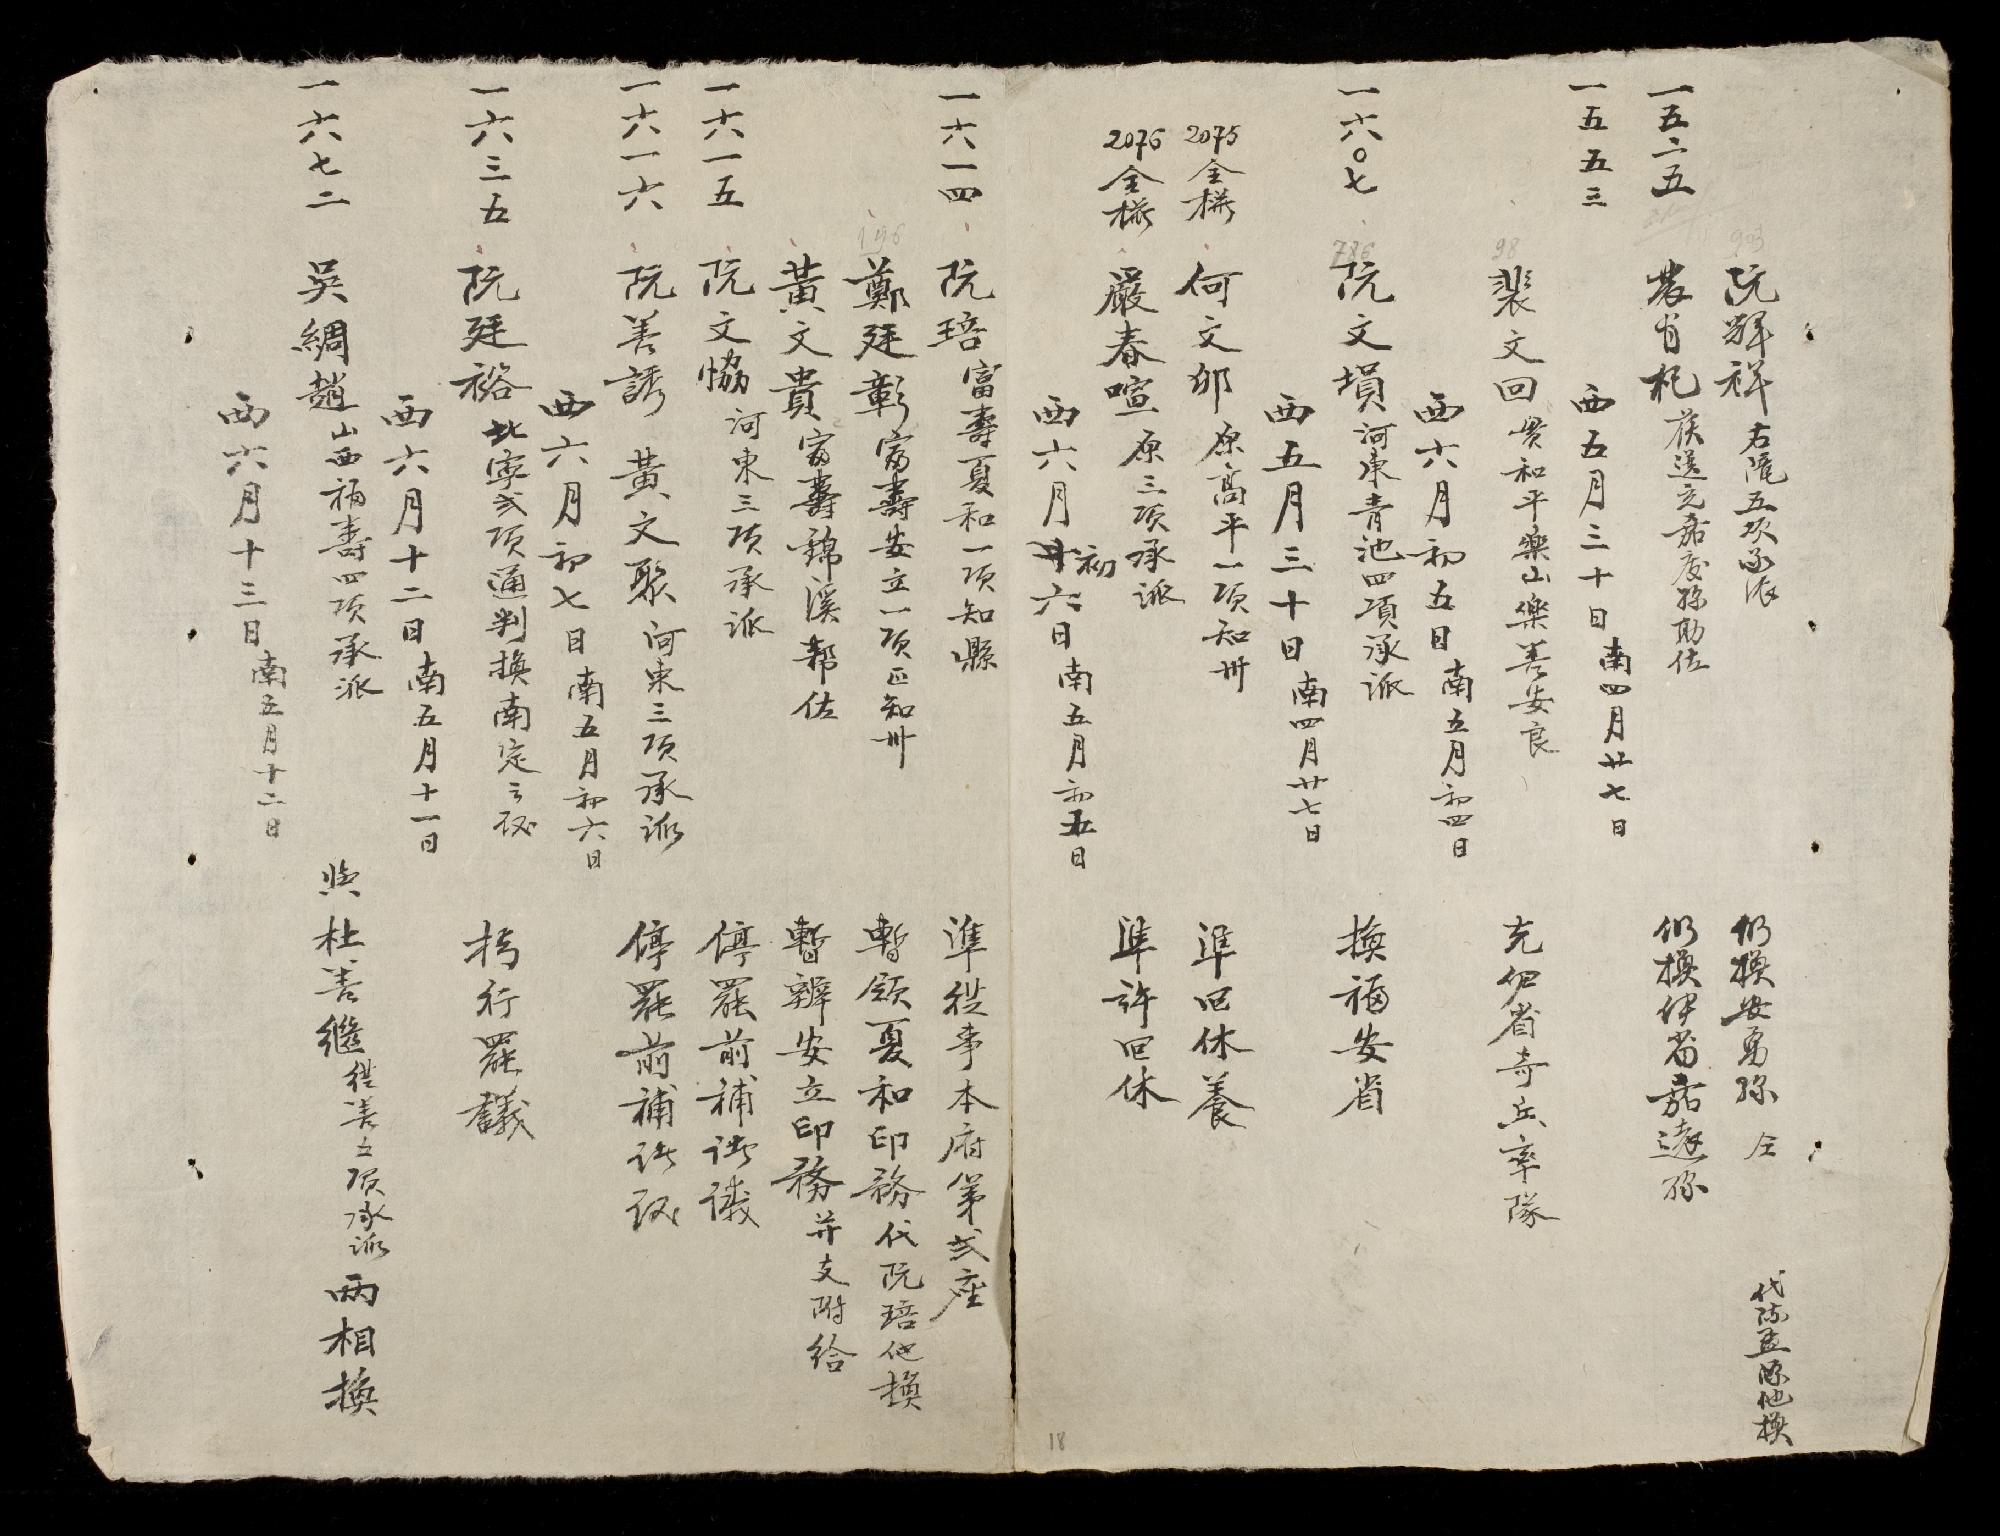 阮輝祥 右隴五項承派 仍換安勇縣 仝 代陈孟 他換
一五二五 農肖札 茯送充嘉慶縣助佐 仍換伊省嘉遠縣
西五月三十日 南四月廿七日
一五五三 裴文回 貫和平樂山樂善安良 充伊省奇兵率隊
西六月初五日 南五月初四日
一六〇七 阮文塤 河東青池四項承派 換福安省
西五月三十日 南四月廿七日
2075 仝様 何文邠 原高平一項知州 準回休養
2076 仝様 嚴春喧 原三項承派 準許回休
西六月初六日 南五月初五日
一六一四 阮琣 富壽夏和一項知縣 準從事本府第弍座
鄭廷彰 富壽安立一項正知州 暫領夏和印務代阮琣他換
黃文貴 富壽錦溪幇佐 暫辦安立印務并支附給
一六一五 阮文協 河東三項承派 停罷前補 議
一六一六 阮善誘 黃文聚 河東三項承派 停罷前補
西六月初七日 南五月初六日
一六三五 阮廷裕 北寧弍項通判換南定 行罷議
西六月十二日 南五月十一日
一六七二 吳綢趙 山西福壽四項承派 與杜善繼 從善五項承派 兩相換
西六月十三日 南五月十二日
903
98
786
196
18